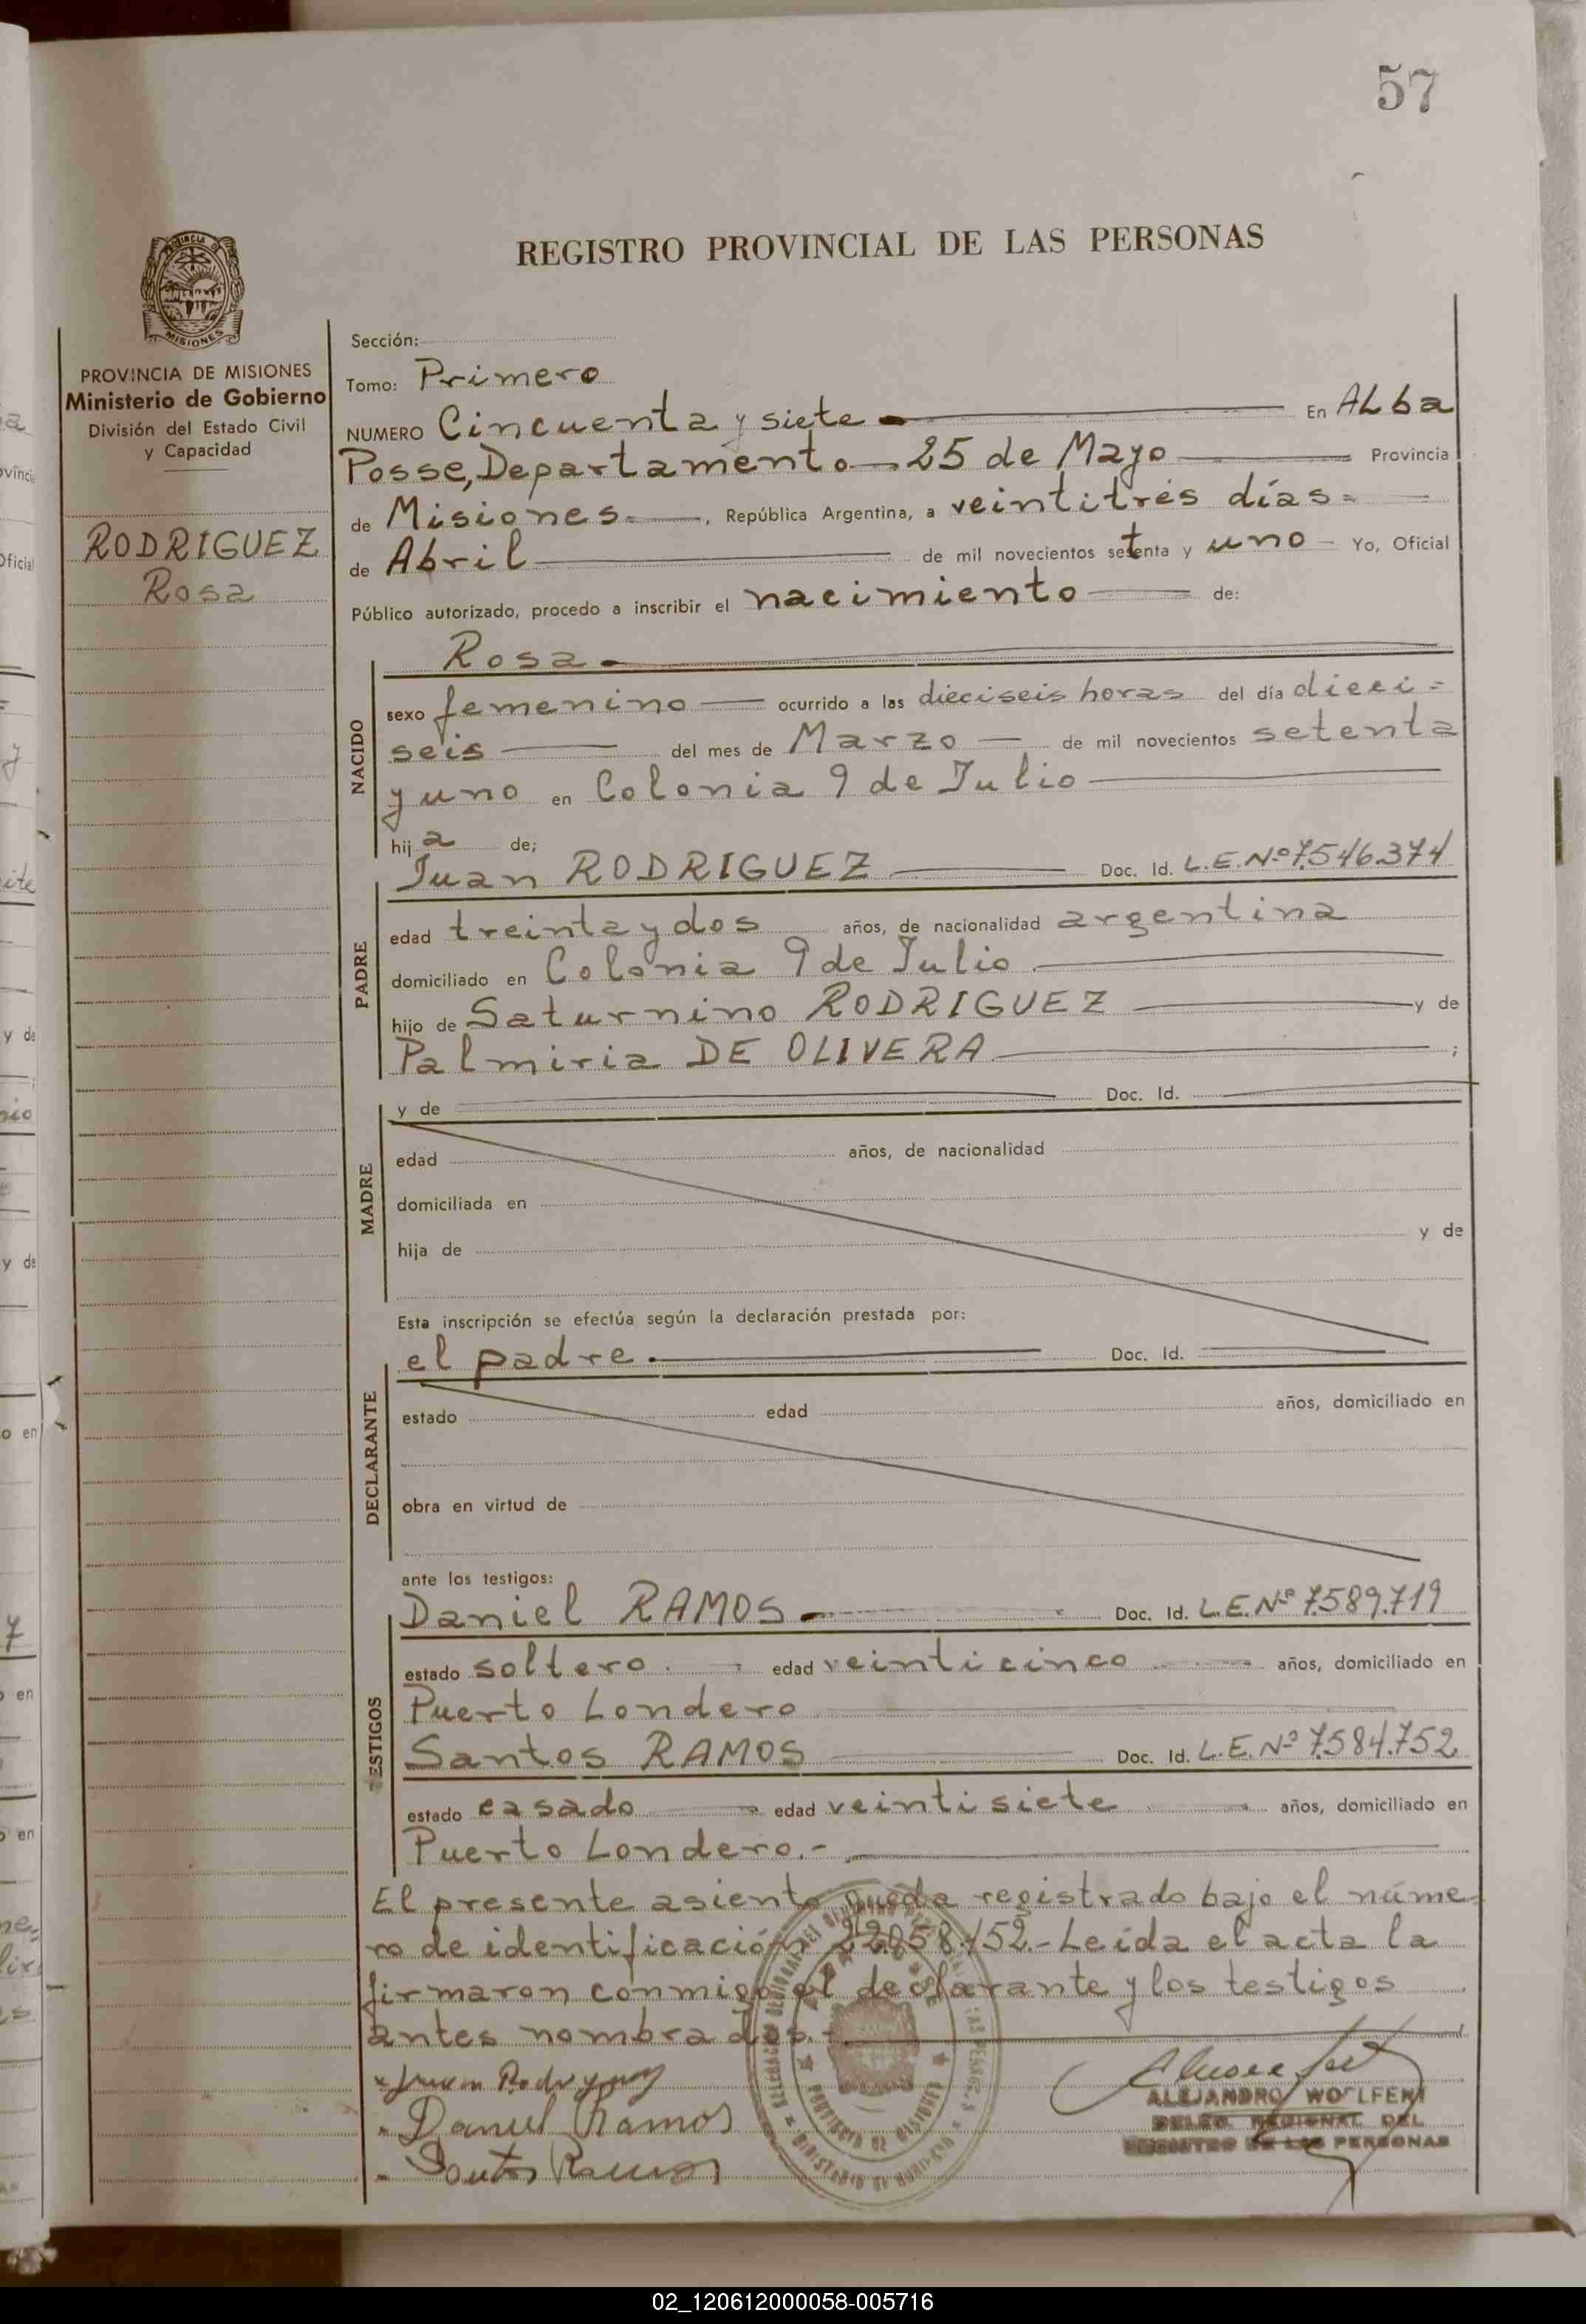 57
REGISTRO PROVINCIAL DE LAS PERSONAS
MISIONES
PROVINCIA DE MISIONES
Ministerio de Gobierno
División del Estado Civil
y Capacidad
RODRIGUEZ
Rosa
Sección:
Tomo: Primero
NUMERO Cincuenta y siete En ALba
Posse, Departamento 25 de Mayo Provincia
de Misiones. , República Argentina, a veintitrés días=
de Abril de mil novecientos setenta y uno Yo, Oficial
Público autorizado, procedo a inscribir el nacimiento de:
NACIDO
Rosa
sexo femenino ocurrido a las dieciseis horas del día dieci=
seis del mes de Marzo de mil novecientos setenta
y uno en Colonia 9 de Julio
hij a de;
PADRE
Juan RODRIGUEZ Doc. Id. L.E.Nº 7.546.374
edad treinta y dos años, de nacionalidad argentina
domiciliado en Colonia 9 de Julio
hijo de Saturnino RODRIGUEZ y de
Palmiria DE OLIVERA ;
MADRE
y de Doc. Id.
edad años, de nacionalidad
domiciliada en
hija de y de
Esta inscripción se efectúa según la declaración prestada por:
DECLARANTE
el padre. Doc. Id.
estado edad años, domiciliado en
obra en virtud de
ante los testigos:
TESTIGOS
Daniel RAMOS Doc. Id. L.E.Nº 7.589.719
estado soltero edad veinticinco años, domiciliado en
Puerto Londero
Santos RAMOS Doc. Id. L.E.Nº 7.584.752
estado casado edad veintisiete años, domiciliado en
Puerto Londero.-
El presente asiento queda registrado bajo el núme-
ro de identificación Leída el acta la
firmaron conmigo el declarante y los testigos
antes nombrados.-
Juan Rodrygues
Daniel Ramos
Santos Ramos
ALEJANDRO
DELEG. REGIONAL DEL
REGISTRO DE LAS PERSONAS
02_120612000058-005716